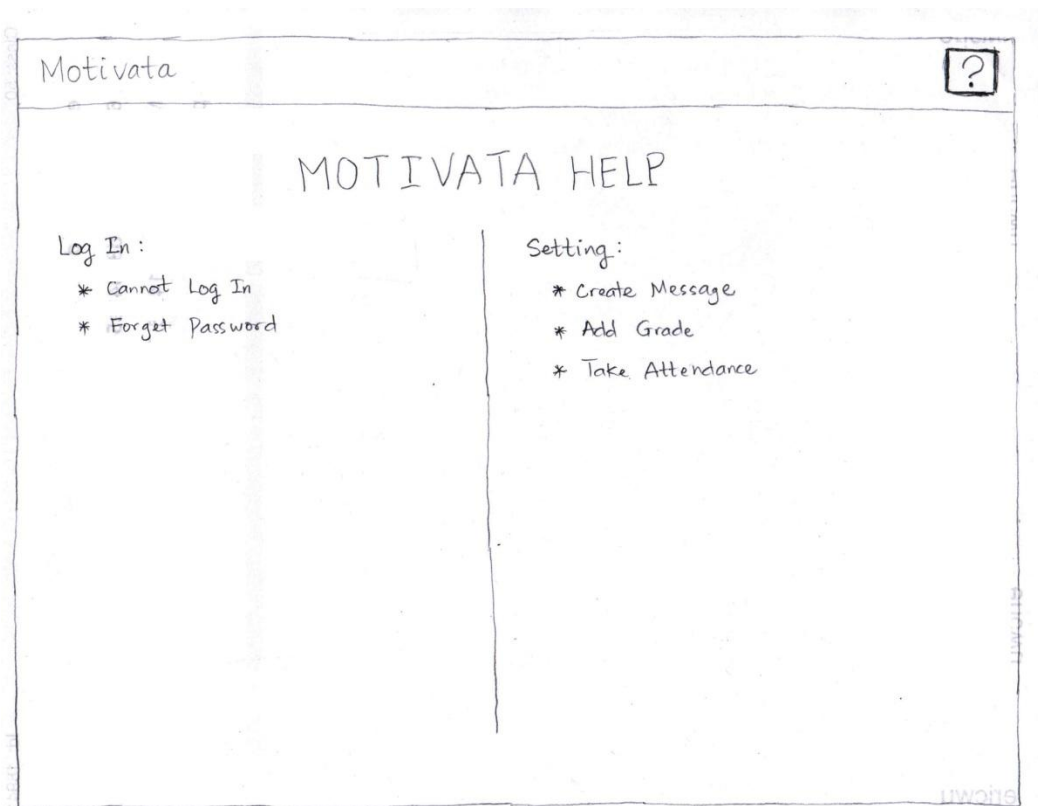 Motivata
?
MOTIVATA HELP
Log In :
* Cannot Log In
* Forget Password
Setting :
* Create Message
* Add Grade
* Take Attendance
ericwu
ericwu